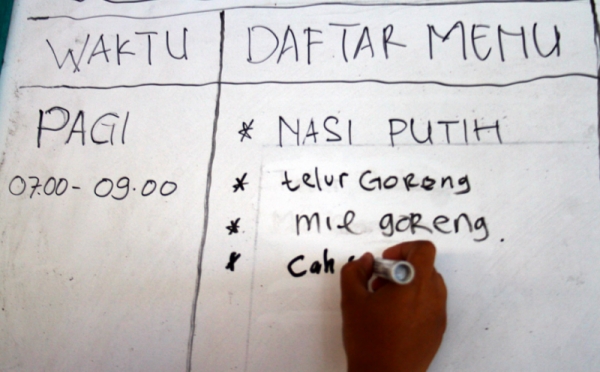 WAKTU DAFTAR MENU
PAGI * NASI PUTIH
07.00 - 09.00 * telur GoReng
* mie goReng.
* Cah